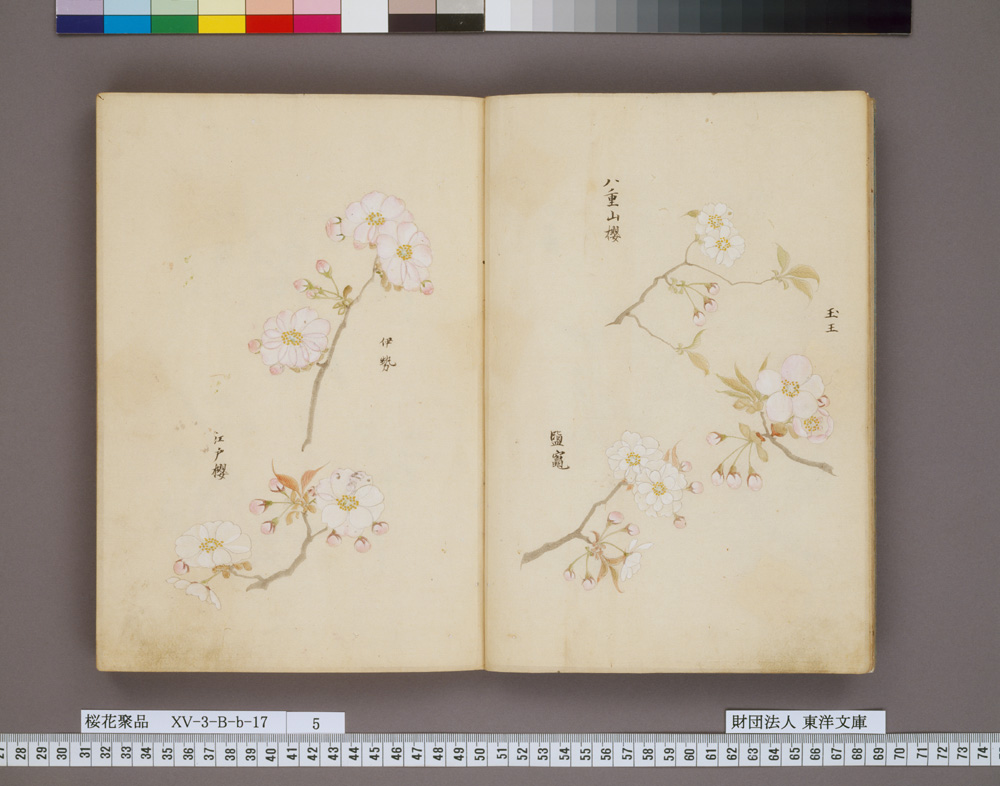 八重山櫻
玉王
鹽竈
伊勢
江戸櫻
桜花聚品 XV-3-B-b-17 5
財団法人 東洋文庫
27 28 29 30 31 32 33 34 35 36 37 38 39 40 41 42 43 44 45 46 47 48 49 50 51 52 53 54 55 56 57 58 59 60 61 62 63 64 65 66 67 68 69 70 71 72 73 74